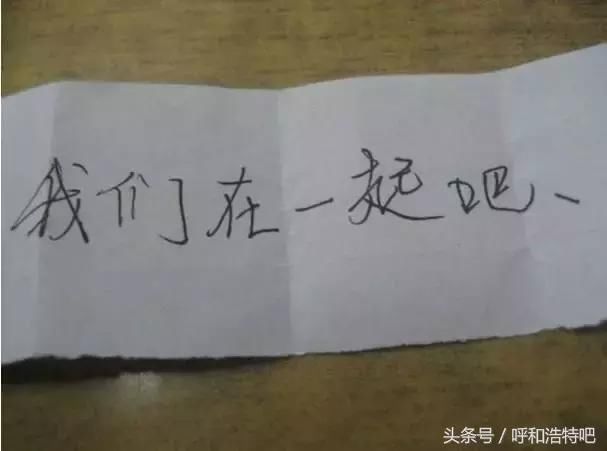 我们在一起吧、
头条号 / 呼和浩特吧